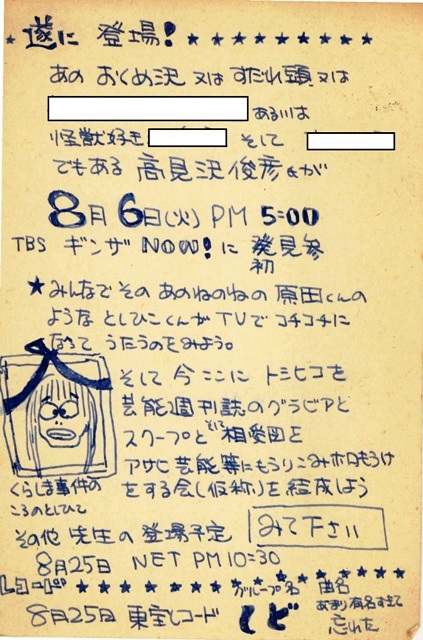 ★遂に 登場! ★★★★★★★★★★
あの おくめ沢 又は すだれ頭 又は
あるいは
怪獣好き そして
でもある 高見沢俊彦くんが
8月6日(火) PM 5:00
TBS ギンザNOW!に 初発見参
★みんなでその あのねのねの 原田くんの
ような としひこくんがTVでコチコチに
なって うたうのをみよう。
そして 今ここに トシヒコを
芸能週刊誌のグラビアと
スクープと そして 相愛図を
アサヒ芸能等にもうりこみホロもうけ
をする会(仮称)を結成しよう
くらしま事件の
ころのとしひこ
その他 先生の登場予定 みて下さい
8月25日 NET PM10:30
レコード ★★★★★★★★★★
グループ名 曲名
8月25日 東宝レコード
あまり有名すぎて
忘れた